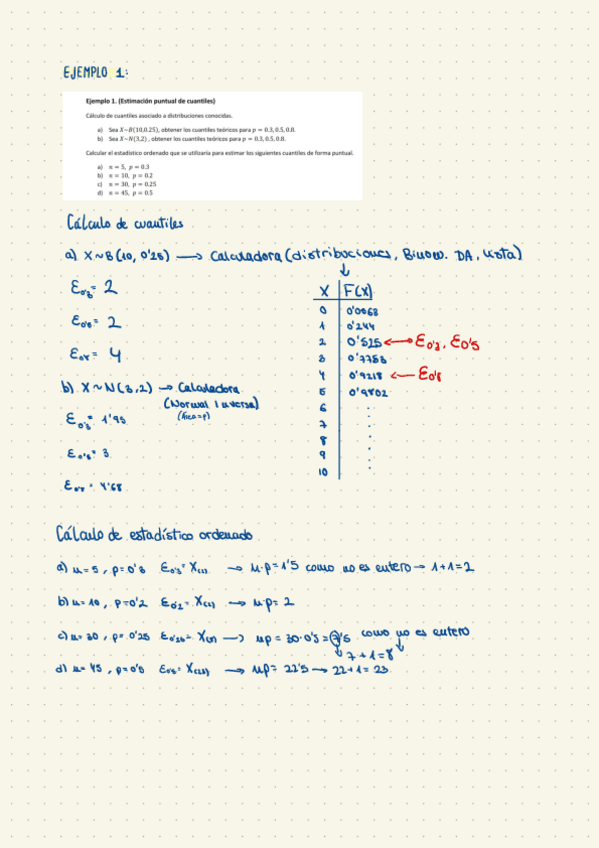 EJEMPLO 1:
Ejemplo 1. (Estimación puntual de cuantiles)
Cálculo de cuantiles asociado a distribuciones conocidas.
a) Sea X~B(10,0.25), obtener los cuantiles teóricos para p = 0.3, 0.5, 0.8.
b) Sea X~N(3,2), obtener los cuantiles teóricos para p = 0.3, 0.5, 0.8.
Calcular el estadístico ordenado que se utilizaría para estimar los siguientes cuantiles de forma puntual.
a) n = 5, p = 0.3
b) n = 10, p = 0.2
c) n = 30, p = 0.25
d) n = 45, p = 0.5
Cálculo de cuantiles
a) X~B(10, 0'25) → Calculadora (distribuciones, Binom. DA, lista)
↓
X F(X)
0 0'0563
1 0'244
2 0'525 ↔ ε0'3, ε0'5
3 0'7758
4 0'9218 ← ε0'8
5 0'9802
6 .
7 .
8 .
9 .
10 .
ε0'3 = 2
ε0'5 = 2
ε0'8 = 4
b) X~N(3,2) → Calculadora
(Normal Inversa)
(Área=p)
ε0'3 = 1'95
ε0'5 = 3
ε0'8 = 4'68
Cálculo de estadístico ordenado
a) n=5, p=0'3 ε0'3 = X(2) → n·p=1'5 como no es entero → 1+1=2
b) n=10, p=0'2 ε0'2 = X(2) → n·p=2
c) n=30, p=0'25 ε0'25 = X(8) → np = 30·0'5 = 7'5 como no es entero
↓ 7+1=8
d) n=45, p=0'5 ε0'5 = X(23) → np = 22'5 → 22+1=23